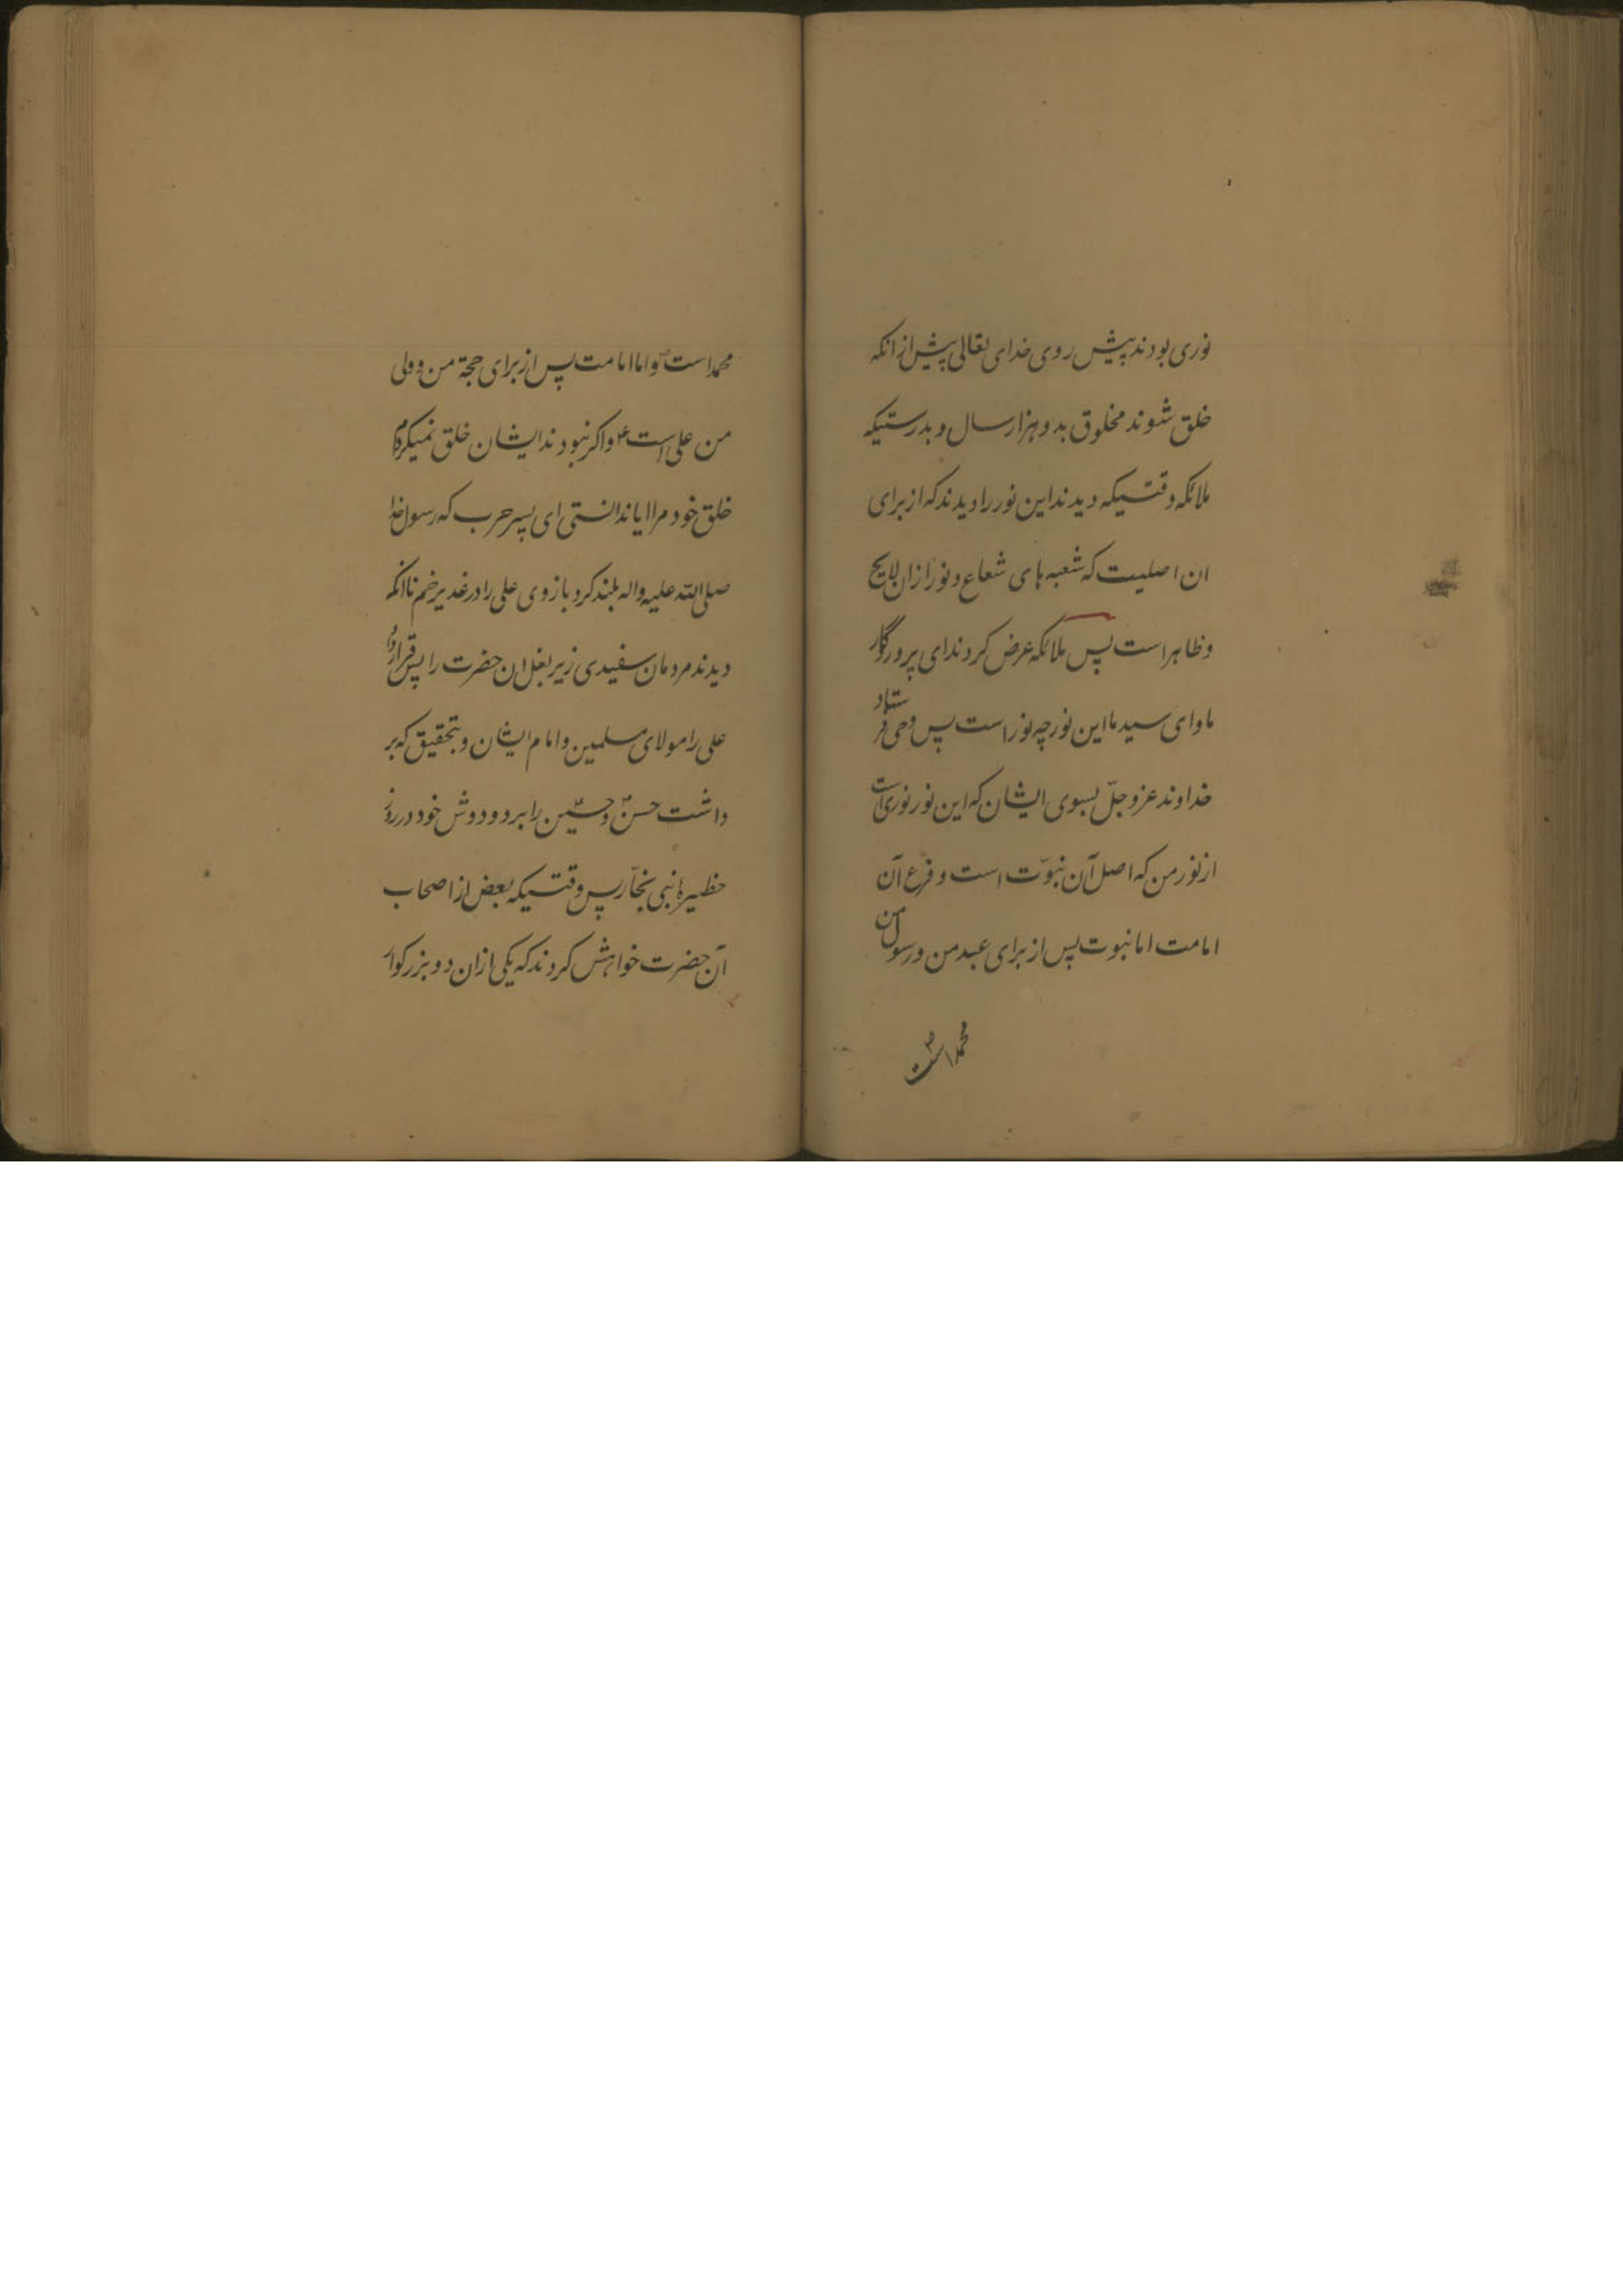 نوری بودند پیش روی خدای تعالی پیش از انکه
خلق شوند مخلوق بدو هزار سال و بدرستیکه
ملائکه وقتیکه دیدند این نور را دیدند که از برای
ان اصلیت که شعبه های شعاع و نور ازان لایح
و ظاهر است پس ملائکه عرض کردند ای پروردگار
ما و ای سید ما این نور چه نور است پس وحی فرستاد
خداوند عز و جلّ بسوی ایشان که این نور نوری است
از نور من که اصل آن نبوّت است و فرع آن
امامت اما نبوت پس از برای عبد من و رسول من
محمد است ص
محمد است ص و اما امامت پس از برای حجة من و ولی
من علی است ع و اکر نبودند ایشان خلق نمیکردم
خلق خود مرا ایا ندانستی ای پسر حرب که رسول خدا
صلی الله علیه و اله بلند کرد بازوی علی را در غدیر خم تا انکه
دیدند مردمان سفیدی زیر بغل ان حضرت را پس قرار داد
علی را مولای مسلمین و امام ایشان و بتحقیق که بر
داشت حسن و حسین را بر دو دوش خود در روز
حظیرهٔ بنی نجّار پس وقتیکه بعض از اصحاب
آن حضرت خواهش کردند که یکی ازان دو بزرکوار